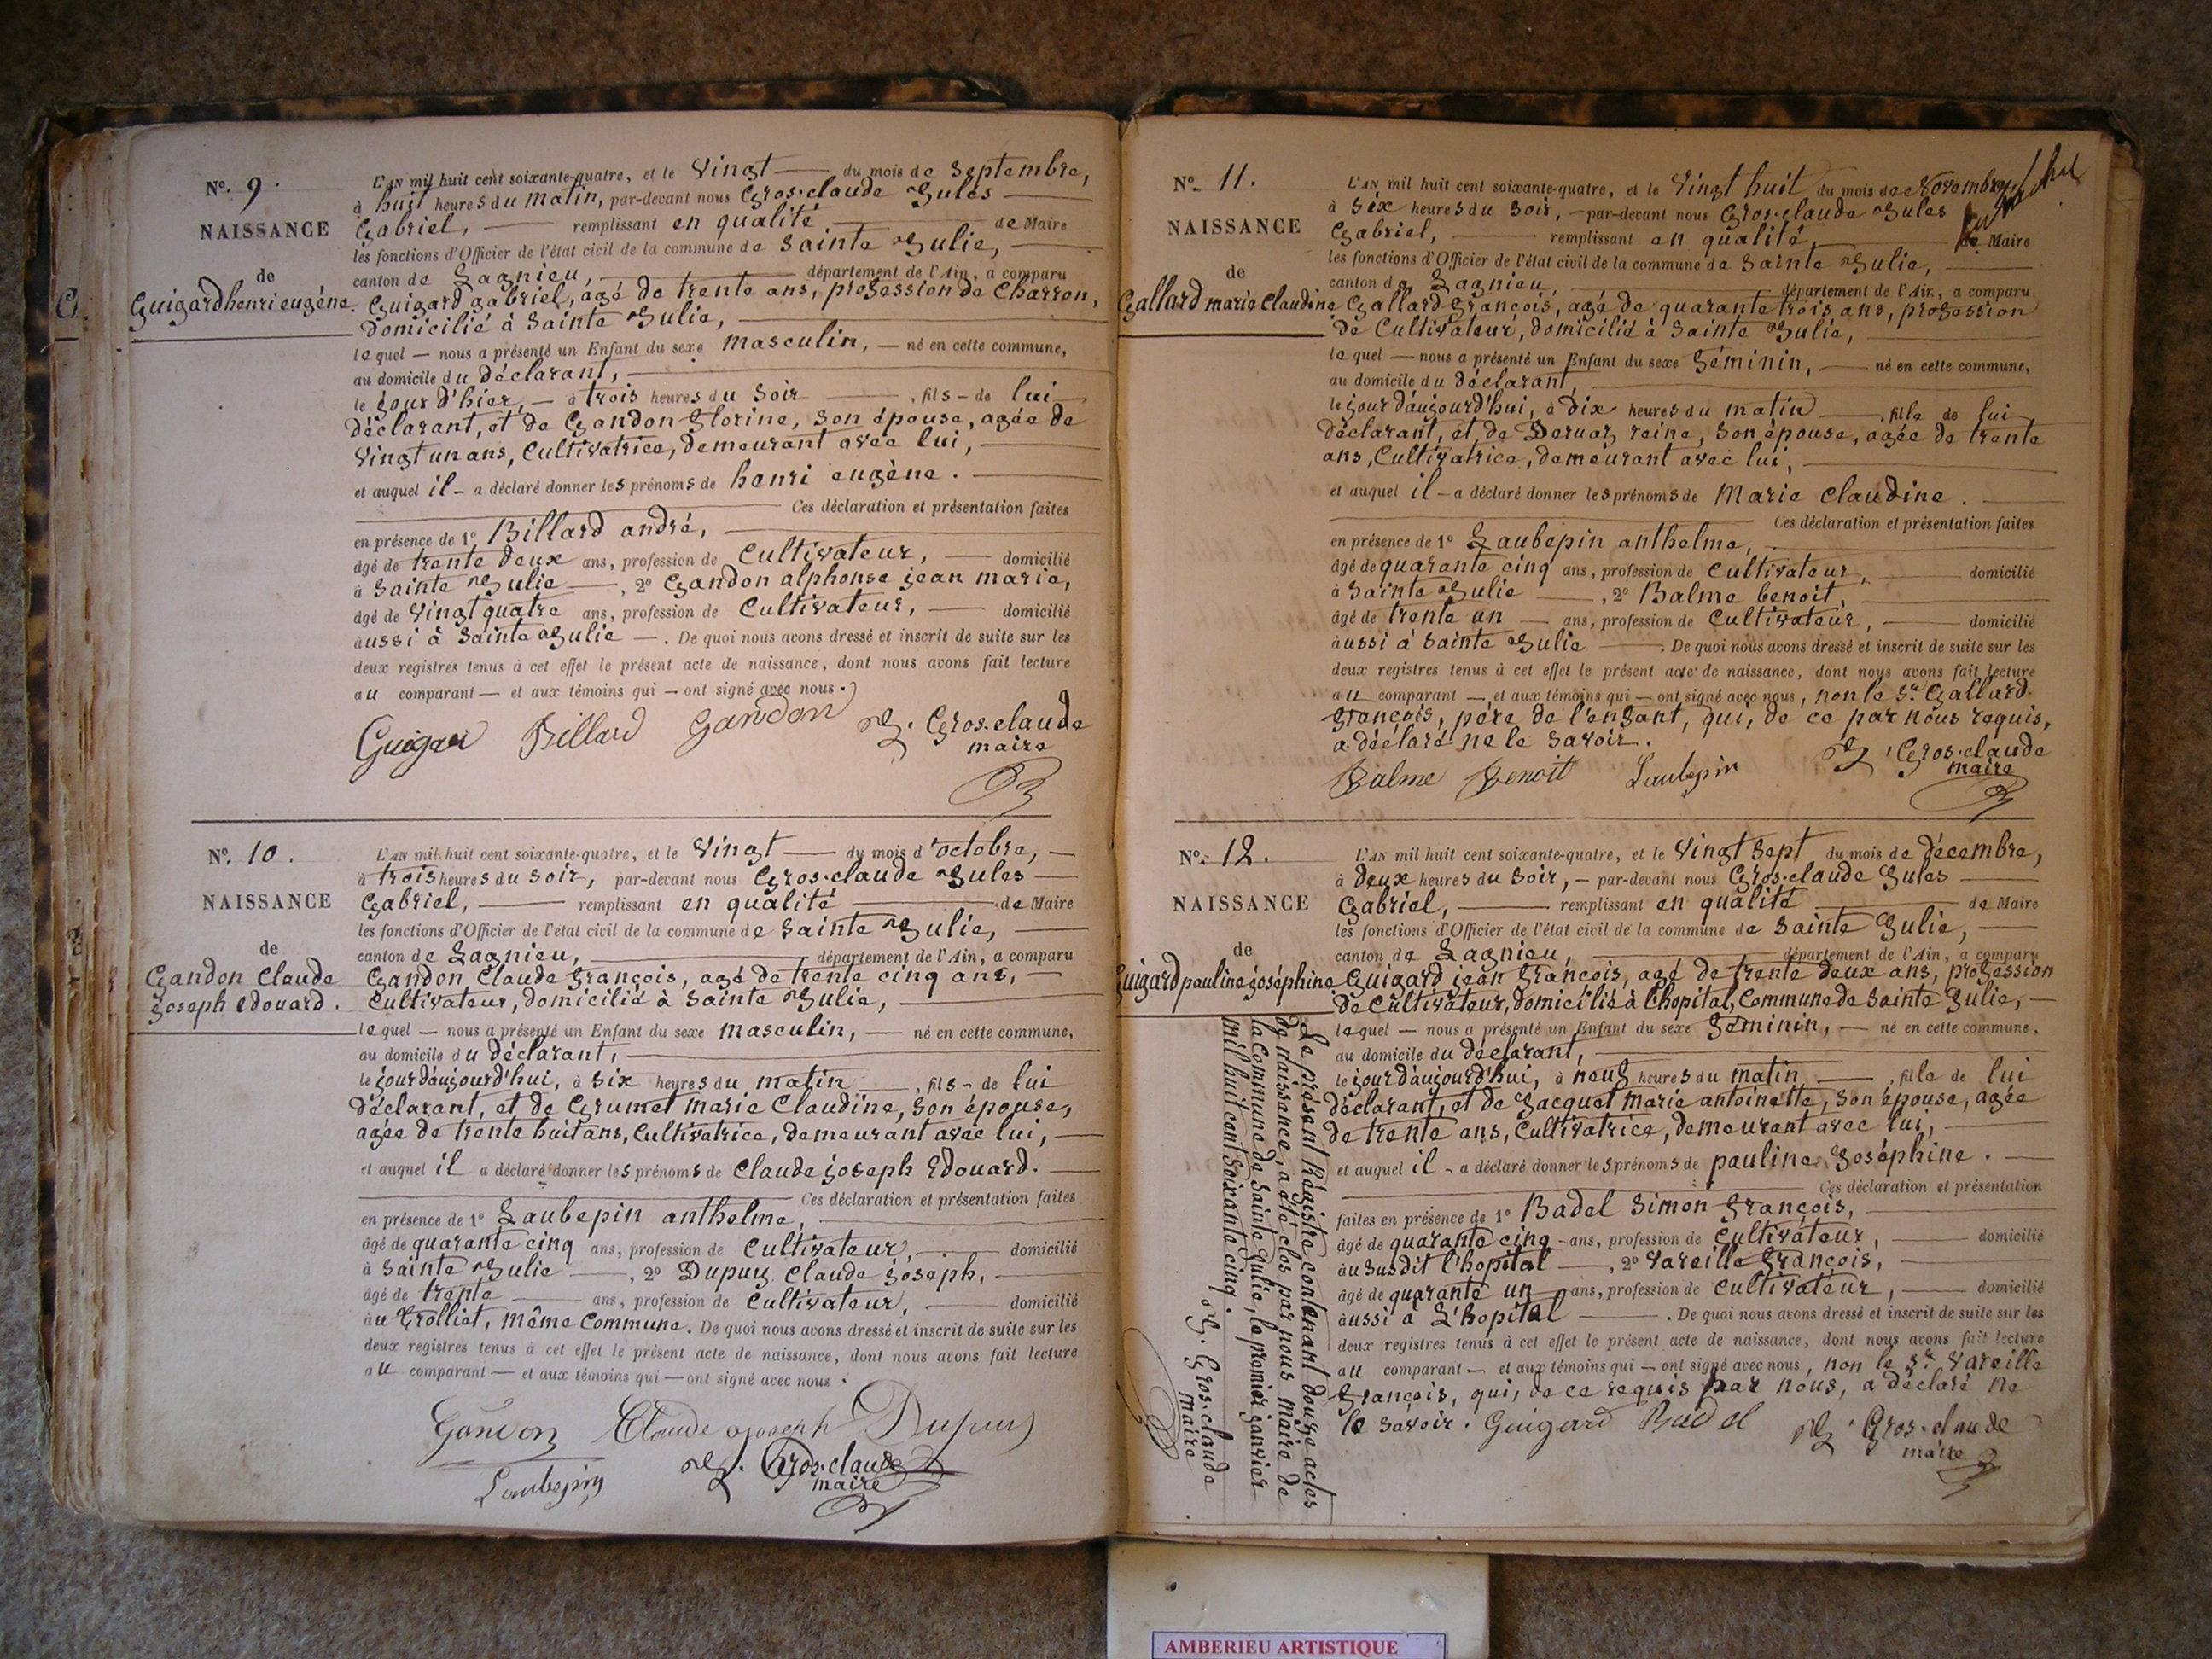 N°. 9.
NAISSANCE
de
Guigard henri eugéne.
L'AN mil huit cent soixante-quatre, et le Vingt du mois de Septembre,
à huit heures du matin, par-devant nous Gros-claude Jules
Gabriel, remplissant en qualité de Maire
les fonctions d'Officier de l'état civil de la commune de Sainte Julie,
canton de Lagnieu, département de l'Ain, a comparu
Guigard gabriel, agé de trente ans, profession de Charron,
domicilié à Sainte Julie,
lequel — nous a présenté un Enfant du sexe masculin, — né en cette commune,
au domicile du déclarant,
le jour d'hier, — à trois heures du Soir , fils - de lui
déclarant, et de Gandon florine, son épouse, agée de
Vingt un ans, Cultivatrice, demeurant avec lui,
et auquel il - a déclaré donner les prénoms de henri eugène.
Ces déclaration et présentation faites
en présence de 1° Billard andré,
âgé de trente deux ans, profession de Cultivateur, domicilié
à Sainte Julie , 2° Gandon alphonse jean marie,
âgé de Vingt quatre ans, profession de Cultivateur, domicilié
aussi à Sainte Julie —. De quoi nous avons dressé et inscrit de suite sur les
deux registres tenus à cet effet le présent acte de naissance, dont nous avons fait lecture
au comparant — et aux témoins qui — ont signé avec nous.
Guigar Billard Gandon J. Gros-claude
maire
N°. 10.
NAISSANCE
de
Gandon Claude
Joseph Edouard.
L'AN mil huit cent soixante-quatre, et le Vingt du mois d'octobre,
à trois heures du soir, par-devant nous Gros-claude Jules
Gabriel, remplissant en qualité de Maire
les fonctions d'Officier de l'état civil de la commune de Sainte Julie,
canton de Lagnieu, département de l'Ain, a comparu
Gandon Claude françois, agé de trente cinq ans,
Cultivateur, domicilié à Sainte Julie,
lequel — nous a présenté un Enfant du sexe masculin, — né en cette commune,
au domicile du déclarant,
le jour d'aujourd'hui, à Six heures du matin , fils - de lui
déclarant, et de Grumet marie Claudine, son épouse,
agée de trente huit ans, Cultivatrice, demeurant avec lui,
et auquel il a déclaré donner les prénoms de Claude joseph Edouard.
Ces déclaration et présentation faites
en présence de 1° Laubepin anthelme,
âgé de quarante cinq ans, profession de Cultivateur, domicilié
à Sainte Julie , 2° Dupuy Claude joseph,
âgé de trente ans, profession de Cultivateur, domicilié
au Trolliet, même Commune. De quoi nous avons dressé et inscrit de suite sur les
deux registres tenus à cet effet le présent acte de naissance, dont nous avons fait lecture
au comparant — et aux témoins qui — ont signé avec nous.
Gandon Claude joseph Dupuy
Laubepin J. Gros-claude
maire
N°. 11.
NAISSANCE
de
Gallard marie Claudine
L'AN mil huit cent soixante-quatre, et le Vingt huit du mois de Novembre,
à Six heures du Soir, — par-devant nous Gros-claude Jules
Gabriel, remplissant en qualité, de Maire
les fonctions d'Officier de l'état civil de la commune de Sainte Julie,
canton de Lagnieu, département de l'Ain, a comparu
Gallard françois, agé de quarante trois ans, profession
de Cultivateur, domicilié à Sainte Julie,
lequel — nous a présenté un Enfant du sexe féminin, — né en cette commune,
au domicile du déclarant,
le jour d'aujourd'hui, à Dix heures du matin , fille de lui
déclarant, et de Dervaz reine, son épouse, agée de trente
ans, Cultivatrice, demeurant avec lui,
et auquel il - a déclaré donner les prénoms de Marie Claudine.
Ces déclaration et présentation faites
en présence de 1° Laubepin anthelme,
âgé de quarante cinq ans, profession de Cultivateur, domicilié
à Sainte Julie , 2° Balme benoit,
âgé de trente un ans, profession de Cultivateur, domicilié
aussi à Sainte Julie . De quoi nous avons dressé et inscrit de suite sur les
deux registres tenus à cet effet le présent acte de naissance, dont nous avons fait lecture
au comparant —, et aux témoins qui — ont signé avec nous, non le Sr. Gallard
françois, père de l'enfant, qui, de ce par nous requis,
a déclaré ne le savoir.
Balme Benoit Laubepin J. Gros-claude
maire
N°. 12.
NAISSANCE
de
Guigard pauline joséphine
L'AN mil huit cent soixante-quatre, et le Vingt Sept du mois de décembre,
à deux heures du Soir, — par-devant nous Gros-claude Jules
Gabriel, remplissant en qualité de Maire
les fonctions d'Officier de l'état civil de la commune de Sainte Julie,
canton de Lagnieu, département de l'Ain, a comparu
Guigard jean françois, agé de trente deux ans, profession
de Cultivateur, domicilié à l'hopital, Commune de Sainte Julie,
lequel — nous a présenté un Enfant du sexe féminin, — né en cette commune,
au domicile du déclarant,
le jour d'aujourd'hui, à neuf heures du matin , fille de lui
déclarant, et de Jacquet marie antoinette, son épouse, agée
de trente ans, Cultivatrice, demeurant avec lui,
et auquel il - a déclaré donner les prénoms de pauline Joséphine.
Ces déclaration et présentation
faites en présence de 1° Badel Simon françois,
âgé de quarante cinq - ans, profession de Cultivateur, domicilié
au susdit l'hopital , 2° Vareille françois,
âgé de quarante un ans, profession de Cultivateur, domicilié
aussi à L'hopital . De quoi nous avons dressé et inscrit de suite sur les
deux registres tenus à cet effet le présent acte de naissance, dont nous avons fait lecture
au comparant — et aux témoins qui — ont signé avec nous, non le Sr. Vareille
françois, qui, de ce requis par nous, a déclaré ne
le savoir. Guigard Badel J. Gros-claude
maire
Le présent Régistre contenant douze actes
de naissance, a été clos par nous maire de
la Commune de Sainte Julie, le premier janvier
mil huit cent Soixante cinq.
J. Gros-claude
maire
AMBERIEU ARTISTIQUE